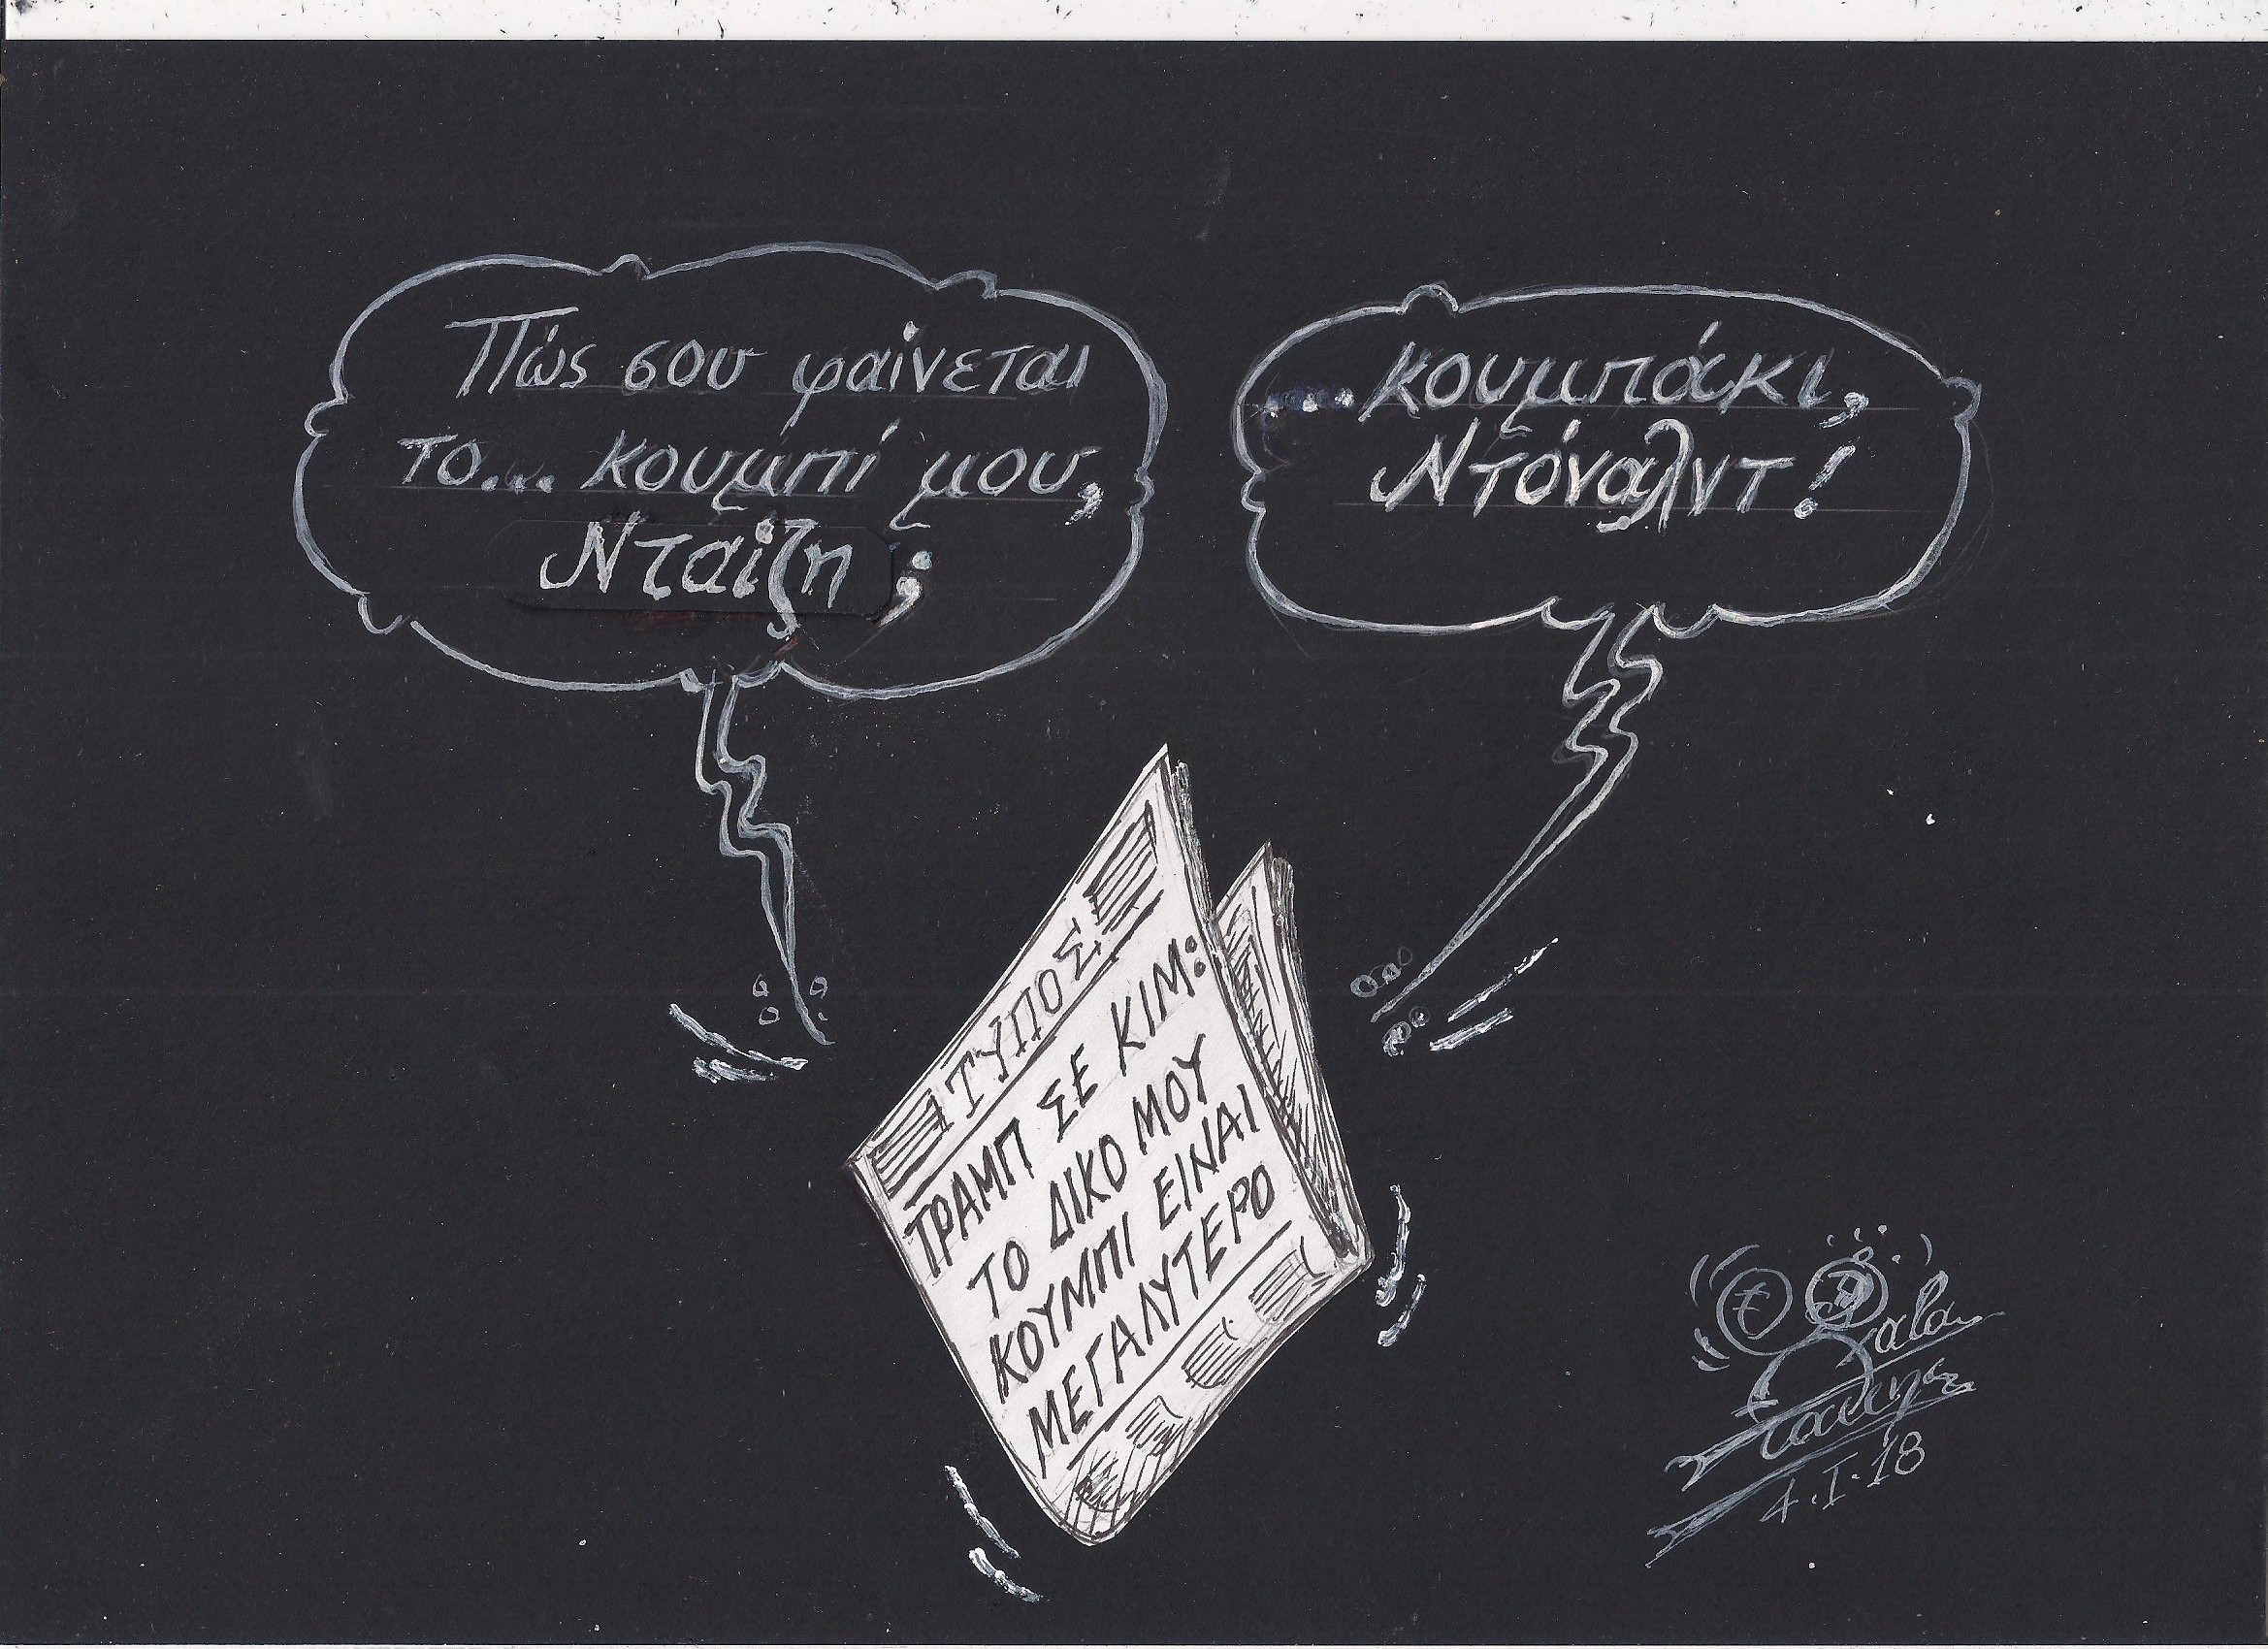 Πώς σου φαίνεται
το... κουμπί μου,
Νταίζη;
...κουμπάκι,
Ντόναλντ!
ΤΥΠΟΣ
ΤΡΑΜΠ ΣΕ ΚΙΜ:
ΤΟ ΔΙΚΟ ΜΟΥ
ΚΟΥΜΠΙ ΕΙΝΑΙ
ΜΕΓΑΛΥΤΕΡΟ
4.I.18